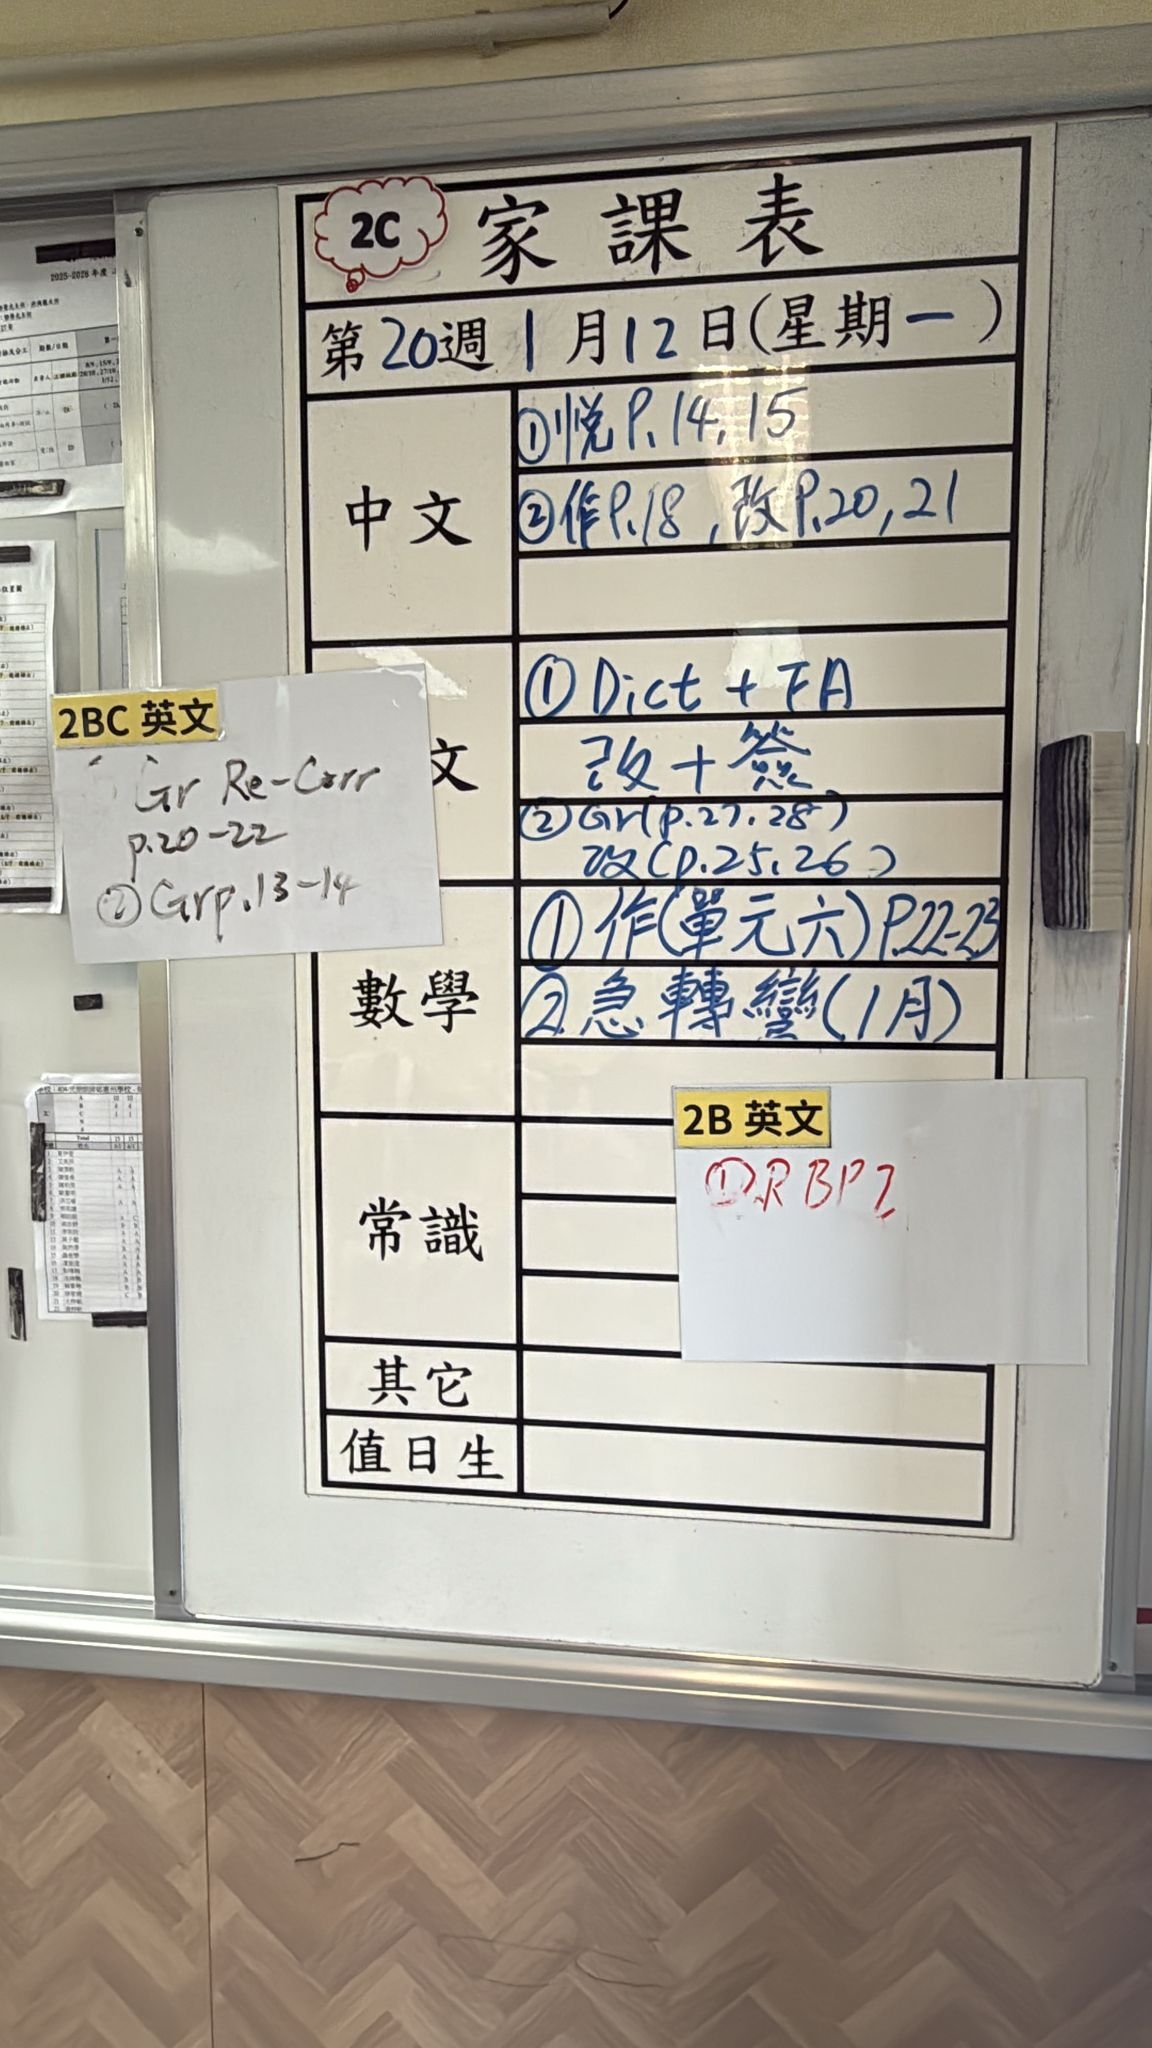 2C 家課表
第20週1月12日(星期一)
中文
①悅P.14,15
②作P.18,改P.20,21
文
①Dict + FA
改+簽
②Gr(p.27,28)
改(p.25,26)
2BC 英文
Gr Re-Corr
p.20-22
②Grp.13-14
數學
①作(單元六)P.22-23
②急轉彎(1月)
常識
2B 英文
①RBP7
其它
值日生
2025-2026 年度
Total